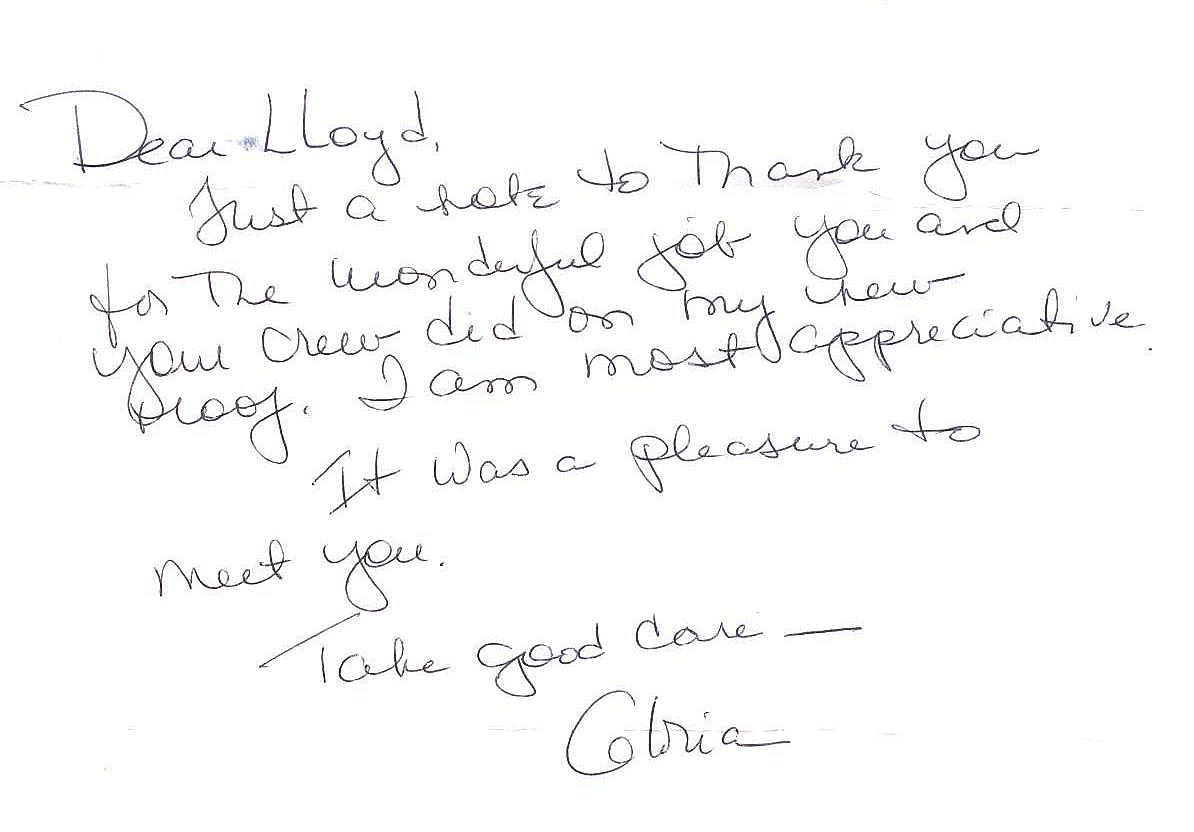 Dear Lloyd,
Just a note to Thank you
for The wonderful job you and
your crew did on my new
roof. I am most appreciative.
It was a pleasure to
meet you.
Take good care —
Gloria